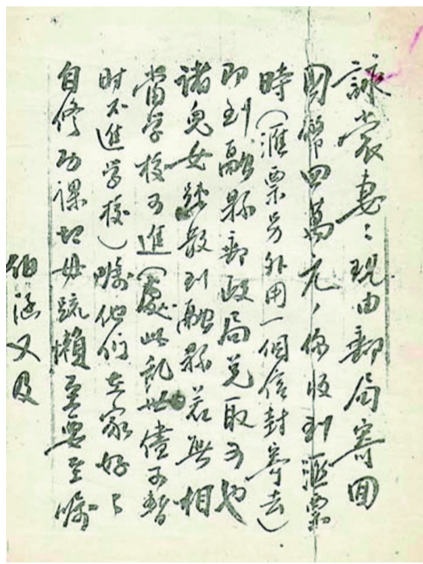 詠裳妻：現由郵局寄回
国幣四萬元，你收到滙票
時（滙票另外用一個信封寄去）
即到融縣郵政局兑取可也
諸兒女疏散到融縣若無相
當学校可進（處此乱世儘可暫
时不進学校）嘱他们在家好〻
自修功课切毋疏懶至要至嘱
又及